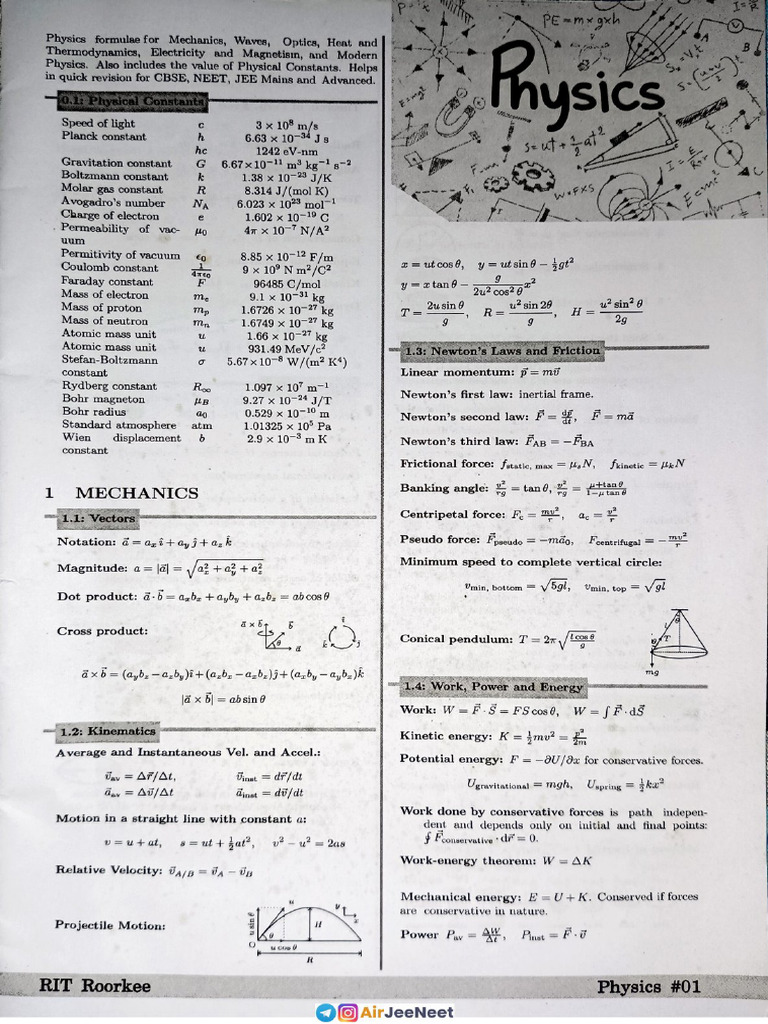 Physics formulae for Mechanics, Waves, Optics, Heat and
Thermodynamics, Electricity and Magnetism, and Modern
Physics. Also includes the value of Physical Constants. Helps
in quick revision for CBSE, NEET, JEE Mains and Advanced.
0.1: Physical Constants
Speed of light c 3 × 10⁸ m/s
Planck constant h 6.63 × 10⁻³⁴ J s
hc 1242 eV-nm
Gravitation constant G 6.67×10⁻¹¹ m³ kg⁻¹ s⁻²
Boltzmann constant k 1.38 × 10⁻²³ J/K
Molar gas constant R 8.314 J/(mol K)
Avogadro's number N_A 6.023 × 10²³ mol⁻¹
Charge of electron e 1.602 × 10⁻¹⁹ C
Permeability of vac- μ₀ 4π × 10⁻⁷ N/A²
uum
Permitivity of vacuum ϵ₀ 8.85 × 10⁻¹² F/m
Coulomb constant 1/(4πϵ₀) 9 × 10⁹ N m²/C²
Faraday constant F 96485 C/mol
Mass of electron mₑ 9.1 × 10⁻³¹ kg
Mass of proton mₚ 1.6726 × 10⁻²⁷ kg
Mass of neutron mₙ 1.6749 × 10⁻²⁷ kg
Atomic mass unit u 1.66 × 10⁻²⁷ kg
Atomic mass unit u 931.49 MeV/c²
Stefan-Boltzmann σ 5.67×10⁻⁸ W/(m² K⁴)
constant
Rydberg constant R∞ 1.097 × 10⁷ m⁻¹
Bohr magneton μ_B 9.27 × 10⁻²⁴ J/T
Bohr radius a₀ 0.529 × 10⁻¹⁰ m
Standard atmosphere atm 1.01325 × 10⁵ Pa
Wien displacement b 2.9 × 10⁻³ m K
constant
1 MECHANICS
1.1: Vectors
Notation: a⃗ = aₓ î + a_y ĵ + a_z k̂
Magnitude: a = |a⃗| = √(aₓ² + a_y² + a_z²)
Dot product: a⃗ · b⃗ = aₓbₓ + a_yb_y + a_zb_z = ab cos θ
Cross product:
a⃗ × b⃗ b⃗ θ a⃗ î ĵ k̂
a⃗ × b⃗ = (a_yb_z − a_zb_y)î + (a_zbₓ − aₓb_z)ĵ + (aₓb_y − a_ybₓ)k̂
|a⃗ × b⃗| = ab sin θ
1.2: Kinematics
Average and Instantaneous Vel. and Accel.:
v⃗_av = Δr⃗/Δt, v⃗_inst = dr⃗/dt
a⃗_av = Δv⃗/Δt a⃗_inst = dv⃗/dt
Motion in a straight line with constant a:
v = u + at, s = ut + ½at², v² − u² = 2as
Relative Velocity: v⃗_A/B = v⃗_A − v⃗_B
Projectile Motion:
u sin θ u y x H O θ u cos θ R
Physics
PE = m x g x h
S = ut + ½ at²
W = F x S
E = mc²
x = ut cos θ, y = ut sin θ − ½gt²
y = x tan θ − g/(2u² cos² θ) x²
T = 2u sin θ/g, R = u² sin 2θ/g, H = u² sin² θ/2g
1.3: Newton's Laws and Friction
Linear momentum: p⃗ = mv⃗
Newton's first law: inertial frame.
Newton's second law: F⃗ = dp⃗/dt, F⃗ = ma⃗
Newton's third law: F⃗_AB = −F⃗_BA
Frictional force: f_static, max = μₛN, f_kinetic = μₖN
Banking angle: v²/rg = tan θ, v²/rg = (μ+tan θ)/(1−μ tan θ)
Centripetal force: F_c = mv²/r, a_c = v²/r
Pseudo force: F⃗_pseudo = −ma⃗₀, F_centrifugal = −mv²/r
Minimum speed to complete vertical circle:
v_min, bottom = √5gl, v_min, top = √gl
Conical pendulum: T = 2π√(l cos θ/g)
l θ θ T mg
1.4: Work, Power and Energy
Work: W = F⃗ · S⃗ = FS cos θ, W = ∫ F⃗ · dS⃗
Kinetic energy: K = ½mv² = p²/2m
Potential energy: F = −∂U/∂x for conservative forces.
U_gravitational = mgh, U_spring = ½kx²
Work done by conservative forces is path indepen-
dent and depends only on initial and final points:
∮ F⃗_conservative · dr⃗ = 0.
Work-energy theorem: W = ΔK
Mechanical energy: E = U + K. Conserved if forces
are conservative in nature.
Power P_av = ΔW/Δt, P_inst = F⃗ · v⃗
RIT Roorkee
Physics #01
AirJeeNeet